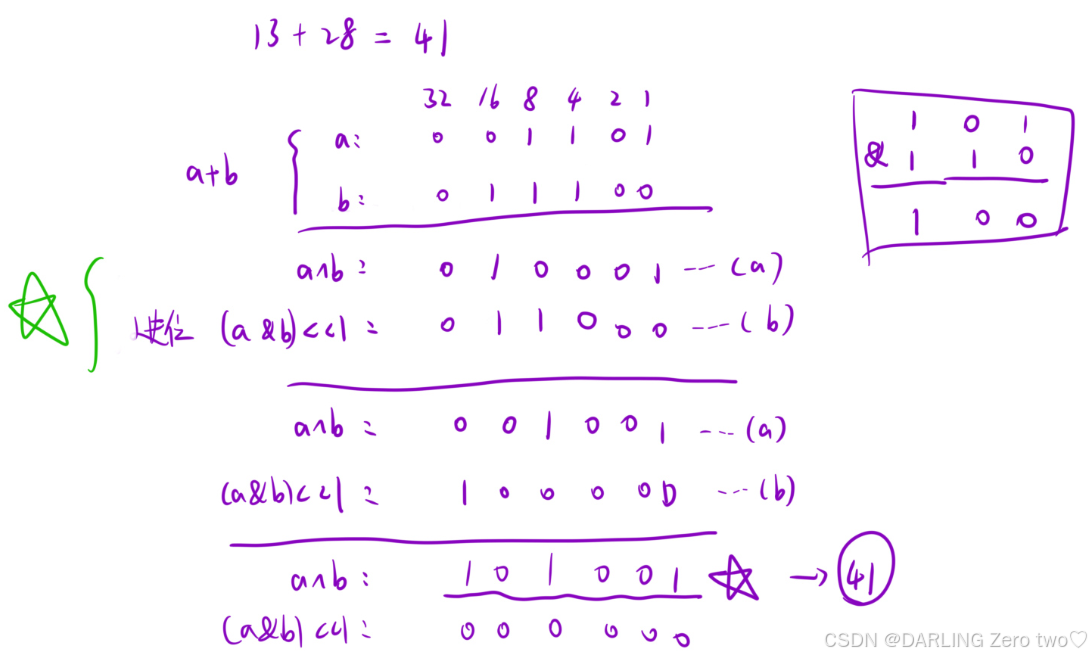 13 + 28 = 41
32 16 8 4 2 1
a: 0 0 1 1 0 1
a+b
b: 0 1 1 1 0 0
1 0 1
& 1 1 0
1 0 0
a∧b: 0 1 0 0 0 1 --- (a)
进位 (a&b)<<1: 0 1 1 0 0 0 --- (b)
a∧b: 0 0 1 0 0 1 --- (a)
(a&b)<<1: 1 0 0 0 0 0 --- (b)
a∧b: 1 0 1 0 0 1 ☆ → 41
(a&b)<<1: 0 0 0 0 0 0
CSDN @DARLING Zero two♡